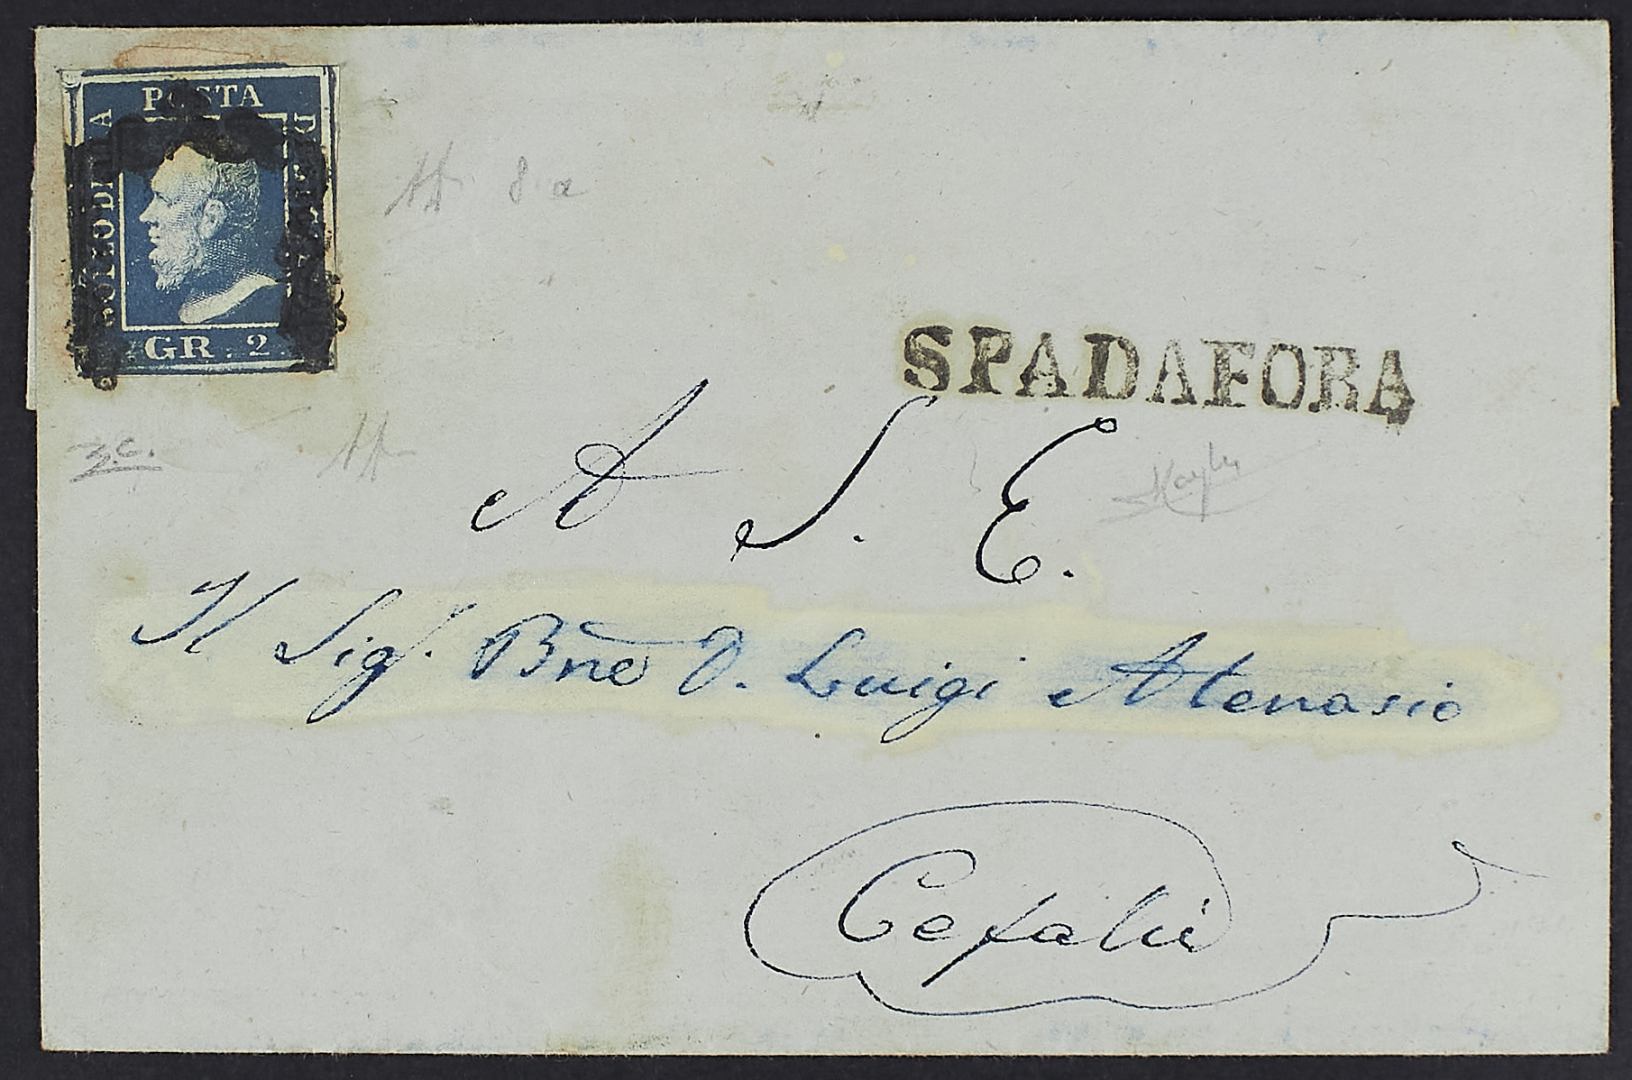 POSTA
BOLLO DELLA
DI SICILIA
GR. 2.
8 a
SPADAFORA
3.c.
A S. E.
Il Sigr. Bne D. Luigi Atenasio
Cefalù